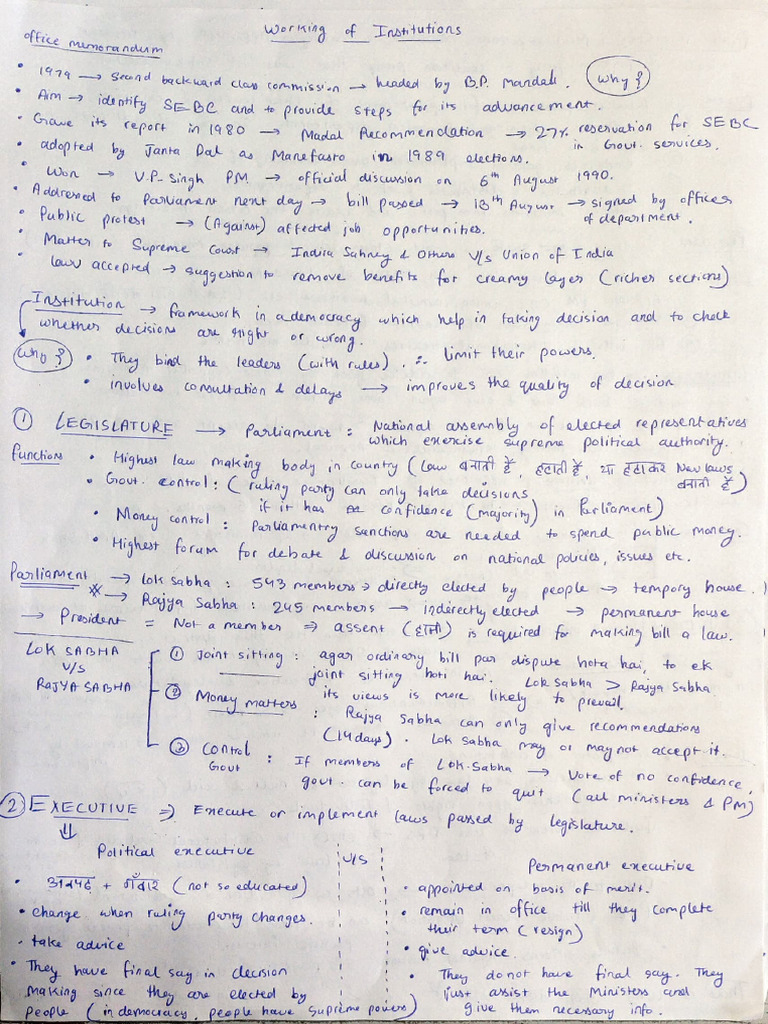 Working of Institutions
office memorandum
• 1979 → Second backward class commission → headed by B.P. Mandal. Why?
• Aim → identify SEBC and to provide steps for its advancement.
• Gave its report in 1980 → Madal Recommendation → 27% reservation for SEBC in Govt. services.
• adopted by Janta Dal as Manefasto in 1989 elections.
• Won → V.P. Singh P.M. → official discussion on 6th August 1990.
• Addressed to Parliament next day → bill passed → 13th August → signed by officer of department.
• Public protest → (Against) affected job opportunities.
• Matter to Supreme Court → Indira Sahney & Others V/s Union of India
• law accepted → suggestion to remove benefits for creamy layer (richer sections)
Institution → framework in a democracy which help in taking decision and to check
whether decisions are right or wrong.
Why? • They bind the leaders (with rules). ∴ limit their powers.
• involves consultation & delays → improves the quality of decision
① LEGISLATURE → Parliament : National assembly of elected representatives
which exercise supreme political authority.
Functions • Highest law making body in country (Law बनाती हैं, हटाती हैं, या हटाकर New laws
बनाती हैं)
• Govt. control : (ruling party can only take decisions
if it has confidence (majority) in Parliament)
• Money control : Parliamentry sanctions are needed to spend public money.
• Highest forum for debate & discussion on national policies, issues etc.
Parliament → Lok Sabha : 543 members → directly elected by people → tempory house.
→ Rajya Sabha : 245 members → indirectly elected → permanent house
→ President = Not a member ⇒ assent (हामी) is required for making bill a law.
LOK SABHA
V/S
RAJYA SABHA
① Joint sitting : agar ordinary bill par dispute hota hai, to ek
joint sitting hoti hai. Lok Sabha > Rajya Sabha
its views is more likely to prevail.
② Money matters : Rajya Sabha can only give recommendations
(14 days). Lok Sabha may or may not accept it.
③ Control Govt : If members of Lok-Sabha → Vote of no confidence,
govt. can be forced to quit (all ministers & PM)
② EXECUTIVE ⇒ Execute or implement laws passed by legislature.
Political executive V/S Permanent executive
• अनपढ़ + गँवार (not so educated)
• change when ruling party changes.
• take advice
• They have final say in decision
making since they are elected by
people (in democracy, people have supreme powers)
• appointed on basis of merit.
• remain in office till they complete
their term (resign)
• give advice.
• They do not have final say. They
just assist the Ministers and
give them necessary info.